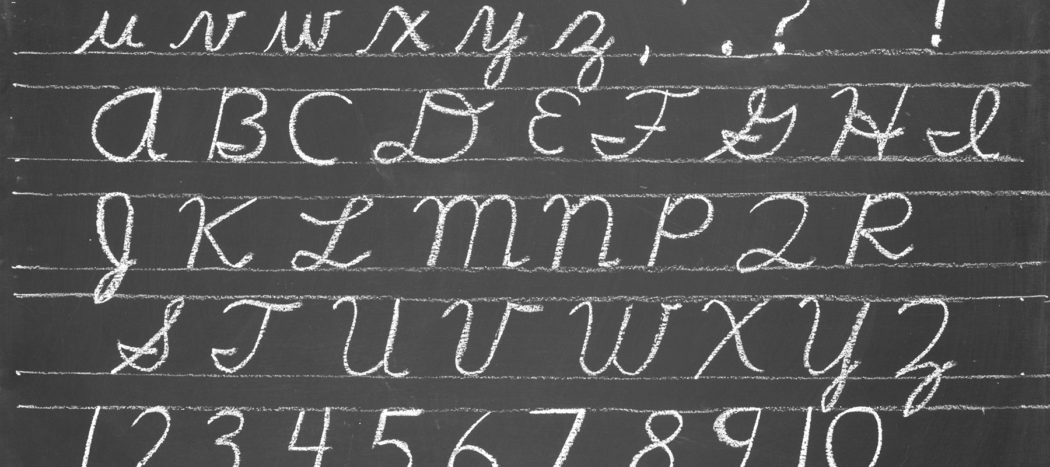 u v w x y z , . ? !
A B C D E F G H I
J K L M N P Q R
S T U V W X Y Z
1 2 3 4 5 6 7 8 9 10